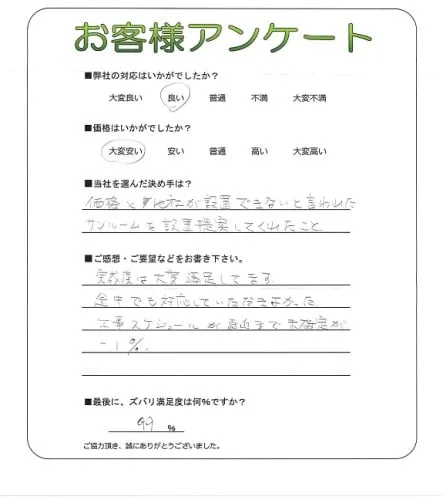 お客様アンケート
■弊社の対応はいかがでしたか?
大変良い 良い 普通 不満 大変不満
■価格はいかがでしたか?
大変安い 安い 普通 高い 大変高い
■当社を選んだ決め手は?
価格と 他社が設置できないと言われた
サンルームを設置提案してくれたこと
■ご感想・ご要望などをお書き下さい。
実質度は大変満足してます。
途中でも対応していただきよかった
工事スケジュールが直前まで未確定が
-1%.
■最後に、ズバリ満足度は何%ですか?
99 %
ご協力頂き、誠にありがとうございました。